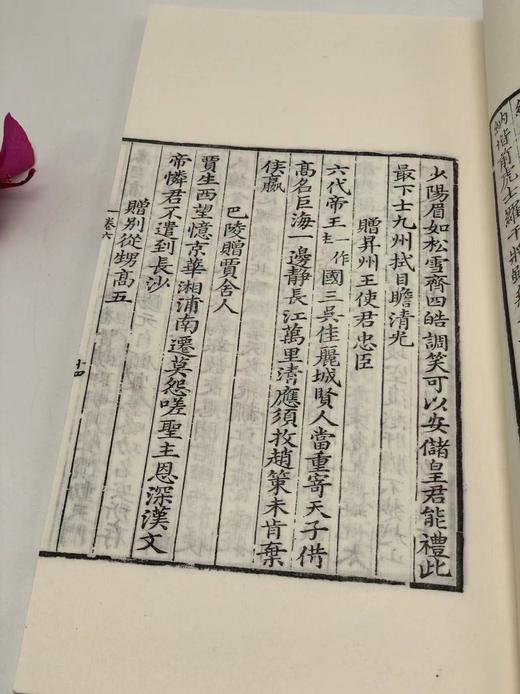 少陽眉如松雪齊四皓調笑可以安儲皇君能禮此
最下士九州拭目瞻清光
贈昇州王使君忠臣
六代帝王一作主國三吳佳麗城賢人當重寄天子借
高名巨海一邊靜長江萬里清應須救趙策未肯棄
侯嬴
巴陵贈賈舍人
賈生西望憶京華湘浦南遷莫怨嗟聖主恩深漢文
帝憐君不遣到長沙
贈別從甥高五
卷六
十四